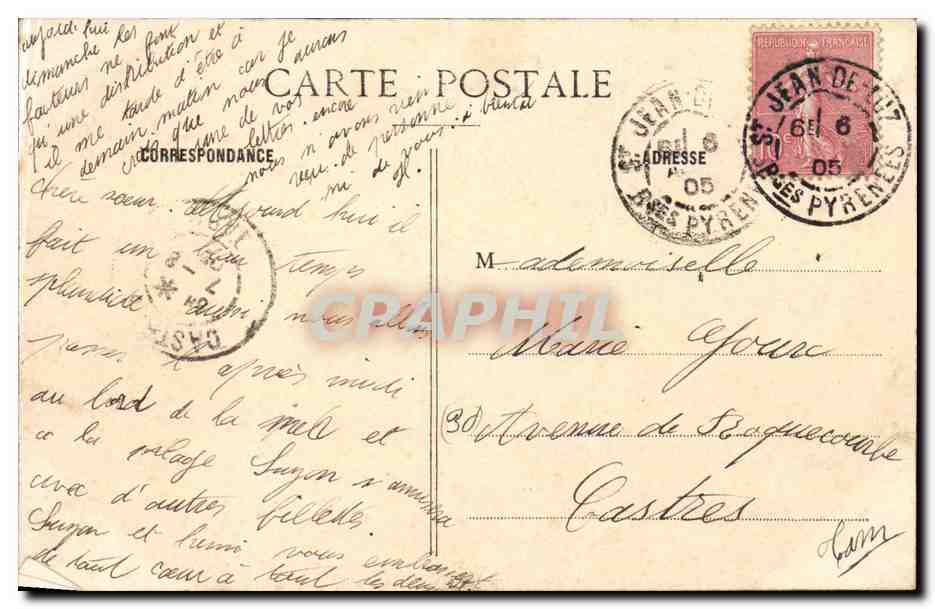 aujourd hui
dimanche les
facteurs ne font
qu'une distribution et
il me tarde d'être à
demain matin car je
crois que nous aurons
une de vos
lettres. encore
nous n'avons rien
reçu de personne
ni de vous. à bientôt
CARTE POSTALE
CORRESPONDANCE
ADRESSE
REPUBLIQUE FRANÇAISE
ST JEAN-DE-LUZ
6E 6
05
BSES PYRENEES
ST JEAN-DE-LUZ
6E 6
05
BSES PYRENEES
chère soeur. aujourd hui il
fait un beau temps
splendide aussi nous allons
passer l'après midi
au bord de la mer et
a la plage Suzon s'amusera
avec d'autres fillettes
Suzon et vous embrassent
de tout coeur à tout les deux
CAST
7
Mademoiselle
Marie
(30) Avenue de Roquecourbe
Castres
Tarn
CPAPHIL